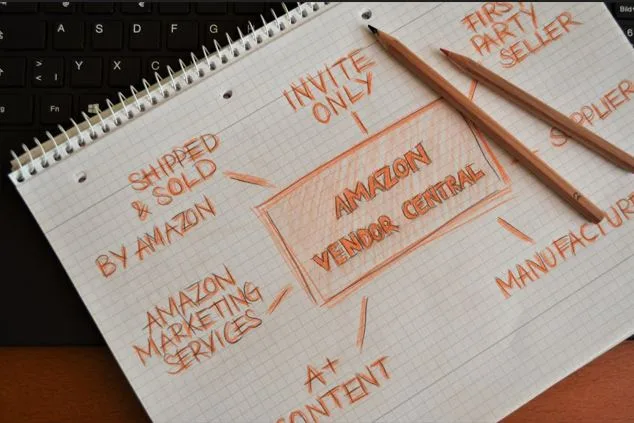 INVITE
ONLY
FIRST
PARTY
SELLER
SHIPPED
& SOLD
BY AMAZON
AMAZON
VENDOR CENTRAL
SUPPLIER
MANUFACTUR
AMAZON
MARKETING
SERVICES
A+
CONTENT
A
S
D
F
G
H
>
<
Y
X
C
Fn
Bild